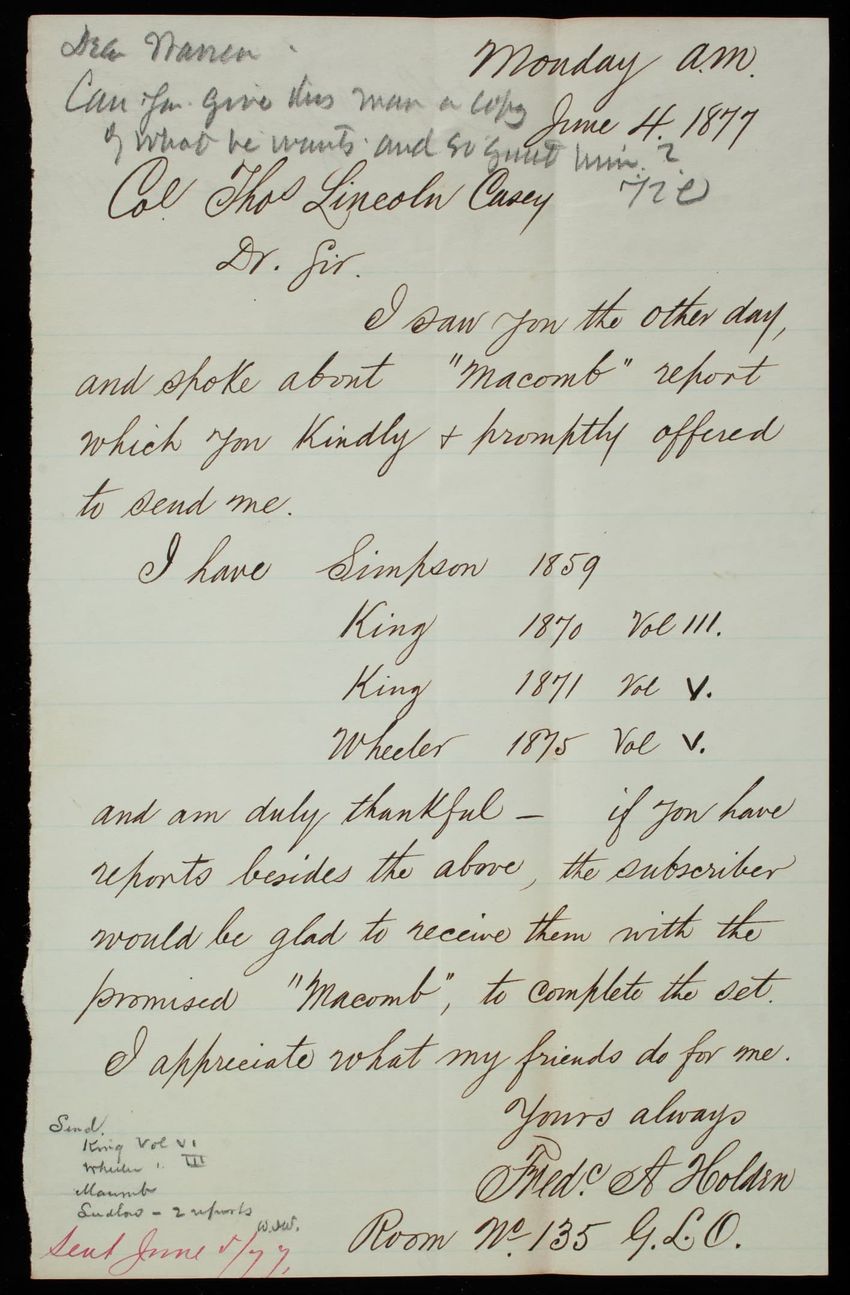 Dear Warren.
Can you give this man a copy
of what he wants and so quiet him?
TLC
Monday a.m.
June 4. 1877
Col Thos Lincoln Casey
Dr. Sir.
I saw you the other day,
and spoke about "Macomb" report
which you kindly & promptly offered
to send me.
I have Simpson 1859
King 1870 Vol III.
King 1871 Vol V.
Wheeler 1875 Vol V.
and am duly thankful – if you have
reports besides the above, the subscriber
would be glad to receive them with the
promised "Macomb", to complete the set.
I appreciate what my friends do for me.
Yours always
Fredc. A Holden
Room No. 135 G.L.O.
Send.
King Vol VI
Wheeler " III
Macomb
Ludlow – 2 reports
Sent June 5/77,